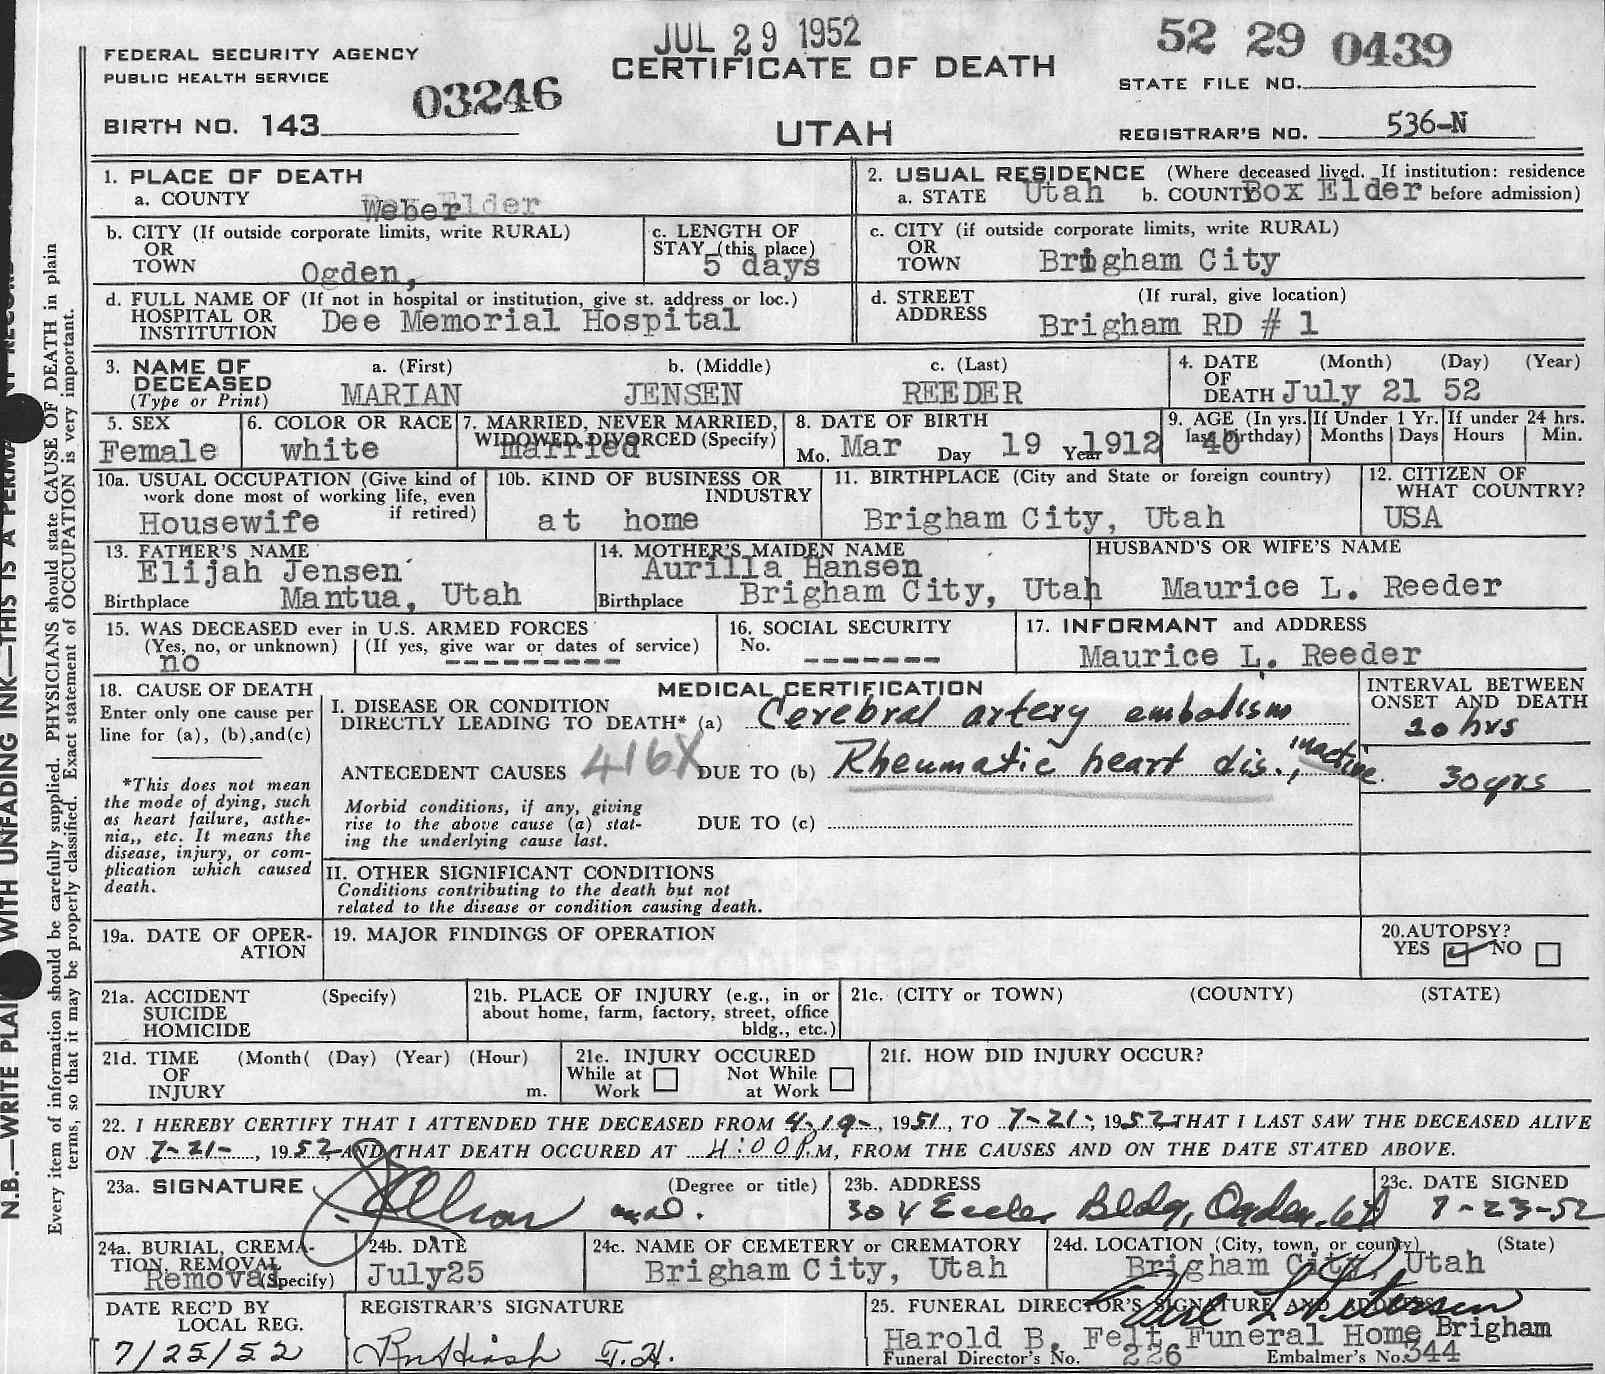 JUL 29 1952
52 29 0439
FEDERAL SECURITY AGENCY
PUBLIC HEALTH SERVICE
CERTIFICATE OF DEATH
STATE FILE NO.
03246
BIRTH NO. 143
UTAH
REGISTRAR'S NO. 536-N
1. PLACE OF DEATH
a. COUNTY Weber
2. USUAL RESIDENCE (Where deceased lived. If institution: residence
a. STATE Utah b. COUNTY Box Elder before admission)
b. CITY (If outside corporate limits, write RURAL)
OR
TOWN Ogden,
c. LENGTH OF
STAY (this place)
5 days
c. CITY (if outside corporate limits, write RURAL)
OR
TOWN Brigham City
d. FULL NAME OF (If not in hospital or institution, give st. address or loc.)
HOSPITAL OR
INSTITUTION Dee Memorial Hospital
d. STREET (If rural, give location)
ADDRESS Brigham RD # 1
3. NAME OF a. (First) b. (Middle) c. (Last)
DECEASED
(Type or Print) MARIAN JENSEN REEDER
4. DATE (Month) (Day) (Year)
OF
DEATH July 21 52
5. SEX
Female
6. COLOR OR RACE
white
7. MARRIED, NEVER MARRIED,
WIDOWED, DIVORCED (Specify)
married
8. DATE OF BIRTH
Mo. Mar Day 19 Year 1912
9. AGE (In yrs.
last birthday)
40
If Under 1 Yr.
Months Days
If under 24 hrs.
Hours Min.
10a. USUAL OCCUPATION (Give kind of
work done most of working life, even
if retired)
Housewife
10b. KIND OF BUSINESS OR
INDUSTRY
at home
11. BIRTHPLACE (City and State or foreign country)
Brigham City, Utah
12. CITIZEN OF
WHAT COUNTRY?
USA
13. FATHER'S NAME
Elijah Jensen
Birthplace Mantua, Utah
14. MOTHER'S MAIDEN NAME
Aurilla Hansen
Birthplace Brigham City, Utah
HUSBAND'S OR WIFE'S NAME
Maurice L. Reeder
15. WAS DECEASED ever in U.S. ARMED FORCES
(Yes, no, or unknown) (If yes, give war or dates of service)
no ---------
16. SOCIAL SECURITY
No.
-------
17. INFORMANT and ADDRESS
Maurice L. Reeder
18. CAUSE OF DEATH
Enter only one cause per
line for (a), (b), and (c)
*This does not mean
the mode of dying, such
as heart failure, asthe-
nia,, etc. It means the
disease, injury, or com-
plication which caused
death.
MEDICAL CERTIFICATION
I. DISEASE OR CONDITION
DIRECTLY LEADING TO DEATH* (a) Cerebral artery embolism
416X
ANTECEDENT CAUSES DUE TO (b) Rheumatic heart dis., inactive.
Morbid conditions, if any, giving
rise to the above cause (a) stat-
ing the underlying cause last.
DUE TO (c)
INTERVAL BETWEEN
ONSET AND DEATH
20 hrs
30 yrs
II. OTHER SIGNIFICANT CONDITIONS
Conditions contributing to the death but not
related to the disease or condition causing death.
19a. DATE OF OPER-
ATION
19. MAJOR FINDINGS OF OPERATION
20. AUTOPSY?
YES NO
21a. ACCIDENT (Specify)
SUICIDE
HOMICIDE
21b. PLACE OF INJURY (e.g., in or
about home, farm, factory, street, office
bldg., etc.)
21c. (CITY or TOWN) (COUNTY) (STATE)
21d. TIME (Month( (Day) (Year) (Hour)
OF
INJURY m.
21e. INJURY OCCURED
While at Not While
Work at Work
21f. HOW DID INJURY OCCUR?
22. I HEREBY CERTIFY THAT I ATTENDED THE DECEASED FROM 4-19-, 1951, TO 7-21-, 1952 THAT I LAST SAW THE DECEASED ALIVE
ON 7-21-, 1952, AND THAT DEATH OCCURED AT 4:00 P.M, FROM THE CAUSES AND ON THE DATE STATED ABOVE.
23a. SIGNATURE (Degree or title)
m.d.
23b. ADDRESS
304 Eccles Bldg, Ogden, Ut
23c. DATE SIGNED
7-23-52
24a. BURIAL, CREMA-
TION, REMOVAL
Removal (Specify)
24b. DATE
July 25
24c. NAME OF CEMETERY or CREMATORY
Brigham City, Utah
24d. LOCATION (City, town, or county) (State)
Brigham City, Utah
DATE REC'D BY
LOCAL REG.
7/25/52
REGISTRAR'S SIGNATURE
25. FUNERAL DIRECTOR'S SIGNATURE AND ADDRESS
Harold B. Felt Funeral Home Brigham
Funeral Director's No. 226 Embalmer's No. 344
N.B.—WRITE PLAINLY WITH UNFADING INK—THIS IS A PERMANENT RECORD
Every item of information should be carefully supplied. PHYSICIANS should state CAUSE OF DEATH in plain
terms, so that it may be properly classified. Exact statement of OCCUPATION is very important.